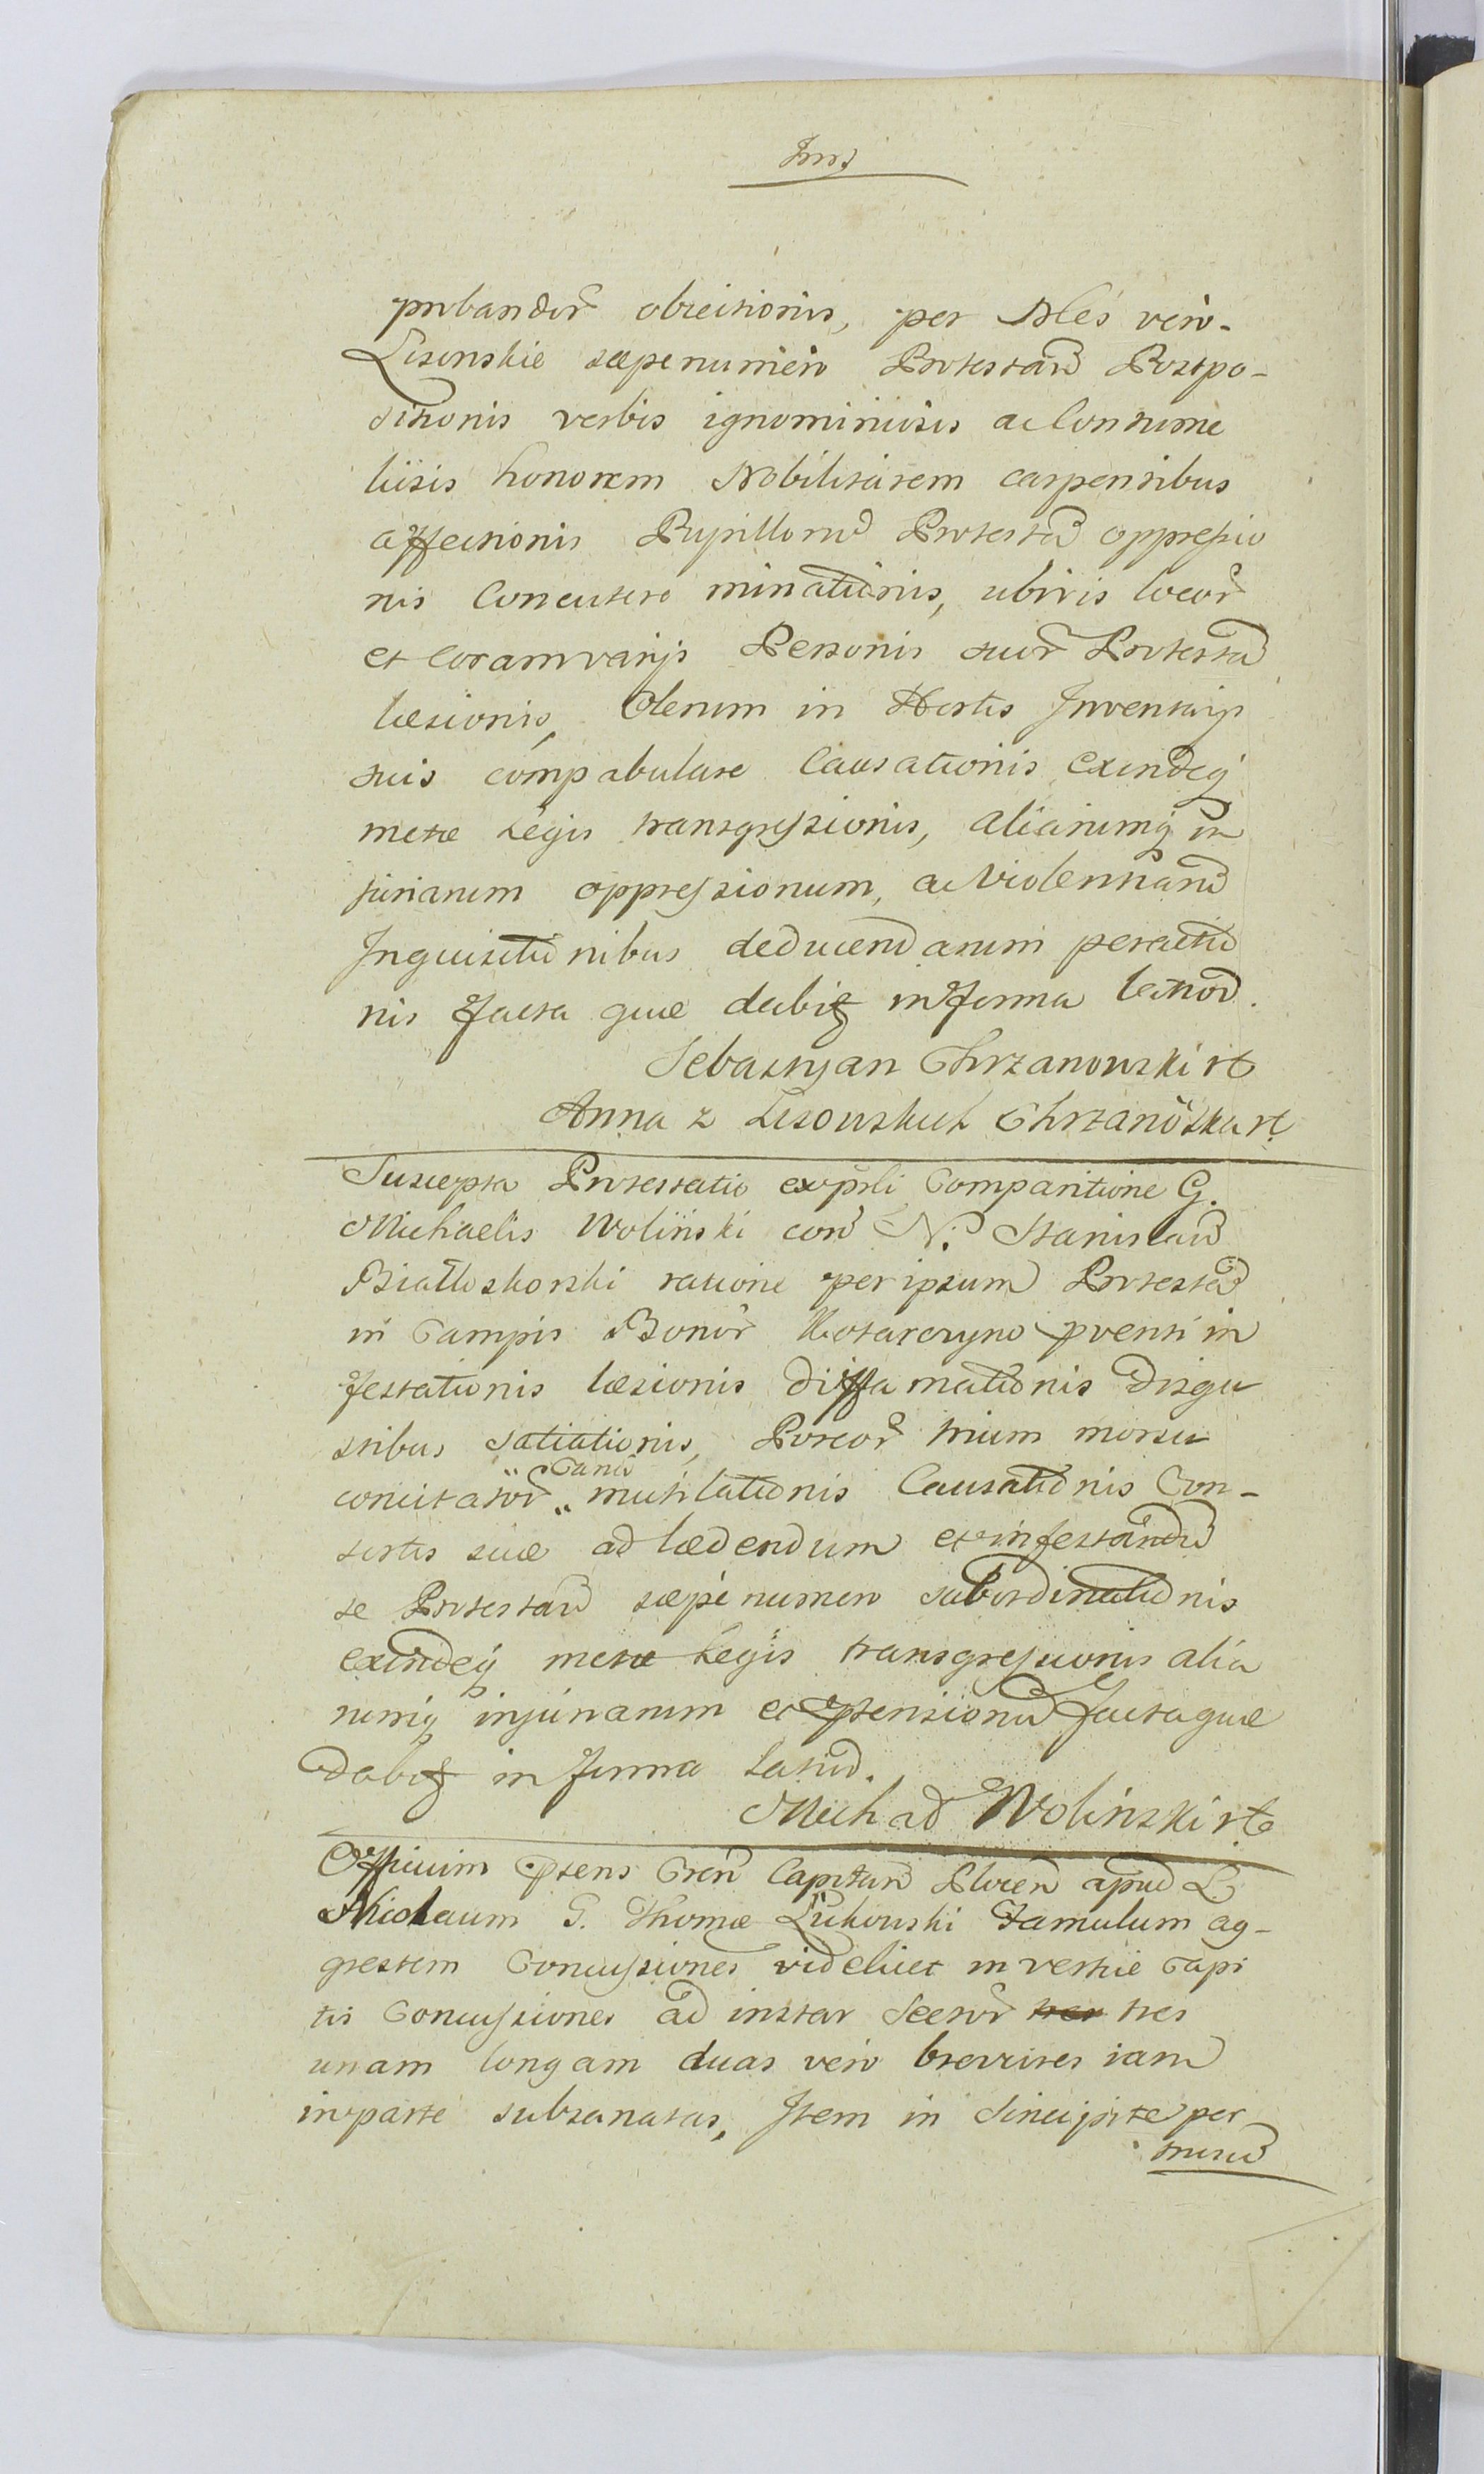 probandor obiectionis, per Nles vero
Lisonskie saepenumero Protestan Postpo-
sitionis verbis ignominiosis ac Contume
liosis honorem Nobilitarem carpentibus
affectionis Pupillorum Protestan oppressio
nis Concutere minationis, ubivis locor
et Coram varijs Personis suor Protestan
laesionis, Olerum in Hortis Inventarijs
suis compabulare Causationis exindeq
metae Legis transgressionis, aliarumq in
juriarum oppressionum, ac Violentiarum
Inquisitionibus deducendarum peractio
nis facta quae dabit in forma latior.
Sebastyan Chrzanowski rt
Anna z Lisowskich Chrzanoska rt
Suscepta Protestatio exprsli Comparitione G.
Michaelis Wolinski con N. Stanislaum
Bialloskorski ratione per ipsum Protestan
in Campis Bonor prventi in
festationis laesionis diffamationis disgu
stibus satiationis, Porcor trium morsu
concitator „Canum„ mutilationis Causationis Con-
sortis suae ad laedendum et infestandum
se Protestan saepenumero subordinationis
exindeq metae Legis transgressionis alia
rumq injuriarum et offensionum facta quae
dabit in forma latior.
Michał Wolinski rt
Officium Prsens Cren Capitan Plocen apud L.
Nicolaum G. Thomae Łukowski Famulum ag-
grestem Concussiones videlicet in vertice Capi
tis Concussiones ad instar Sector tres
unam longam duas vero breviores iam
in parte subsanatas, Item in Sincipite per